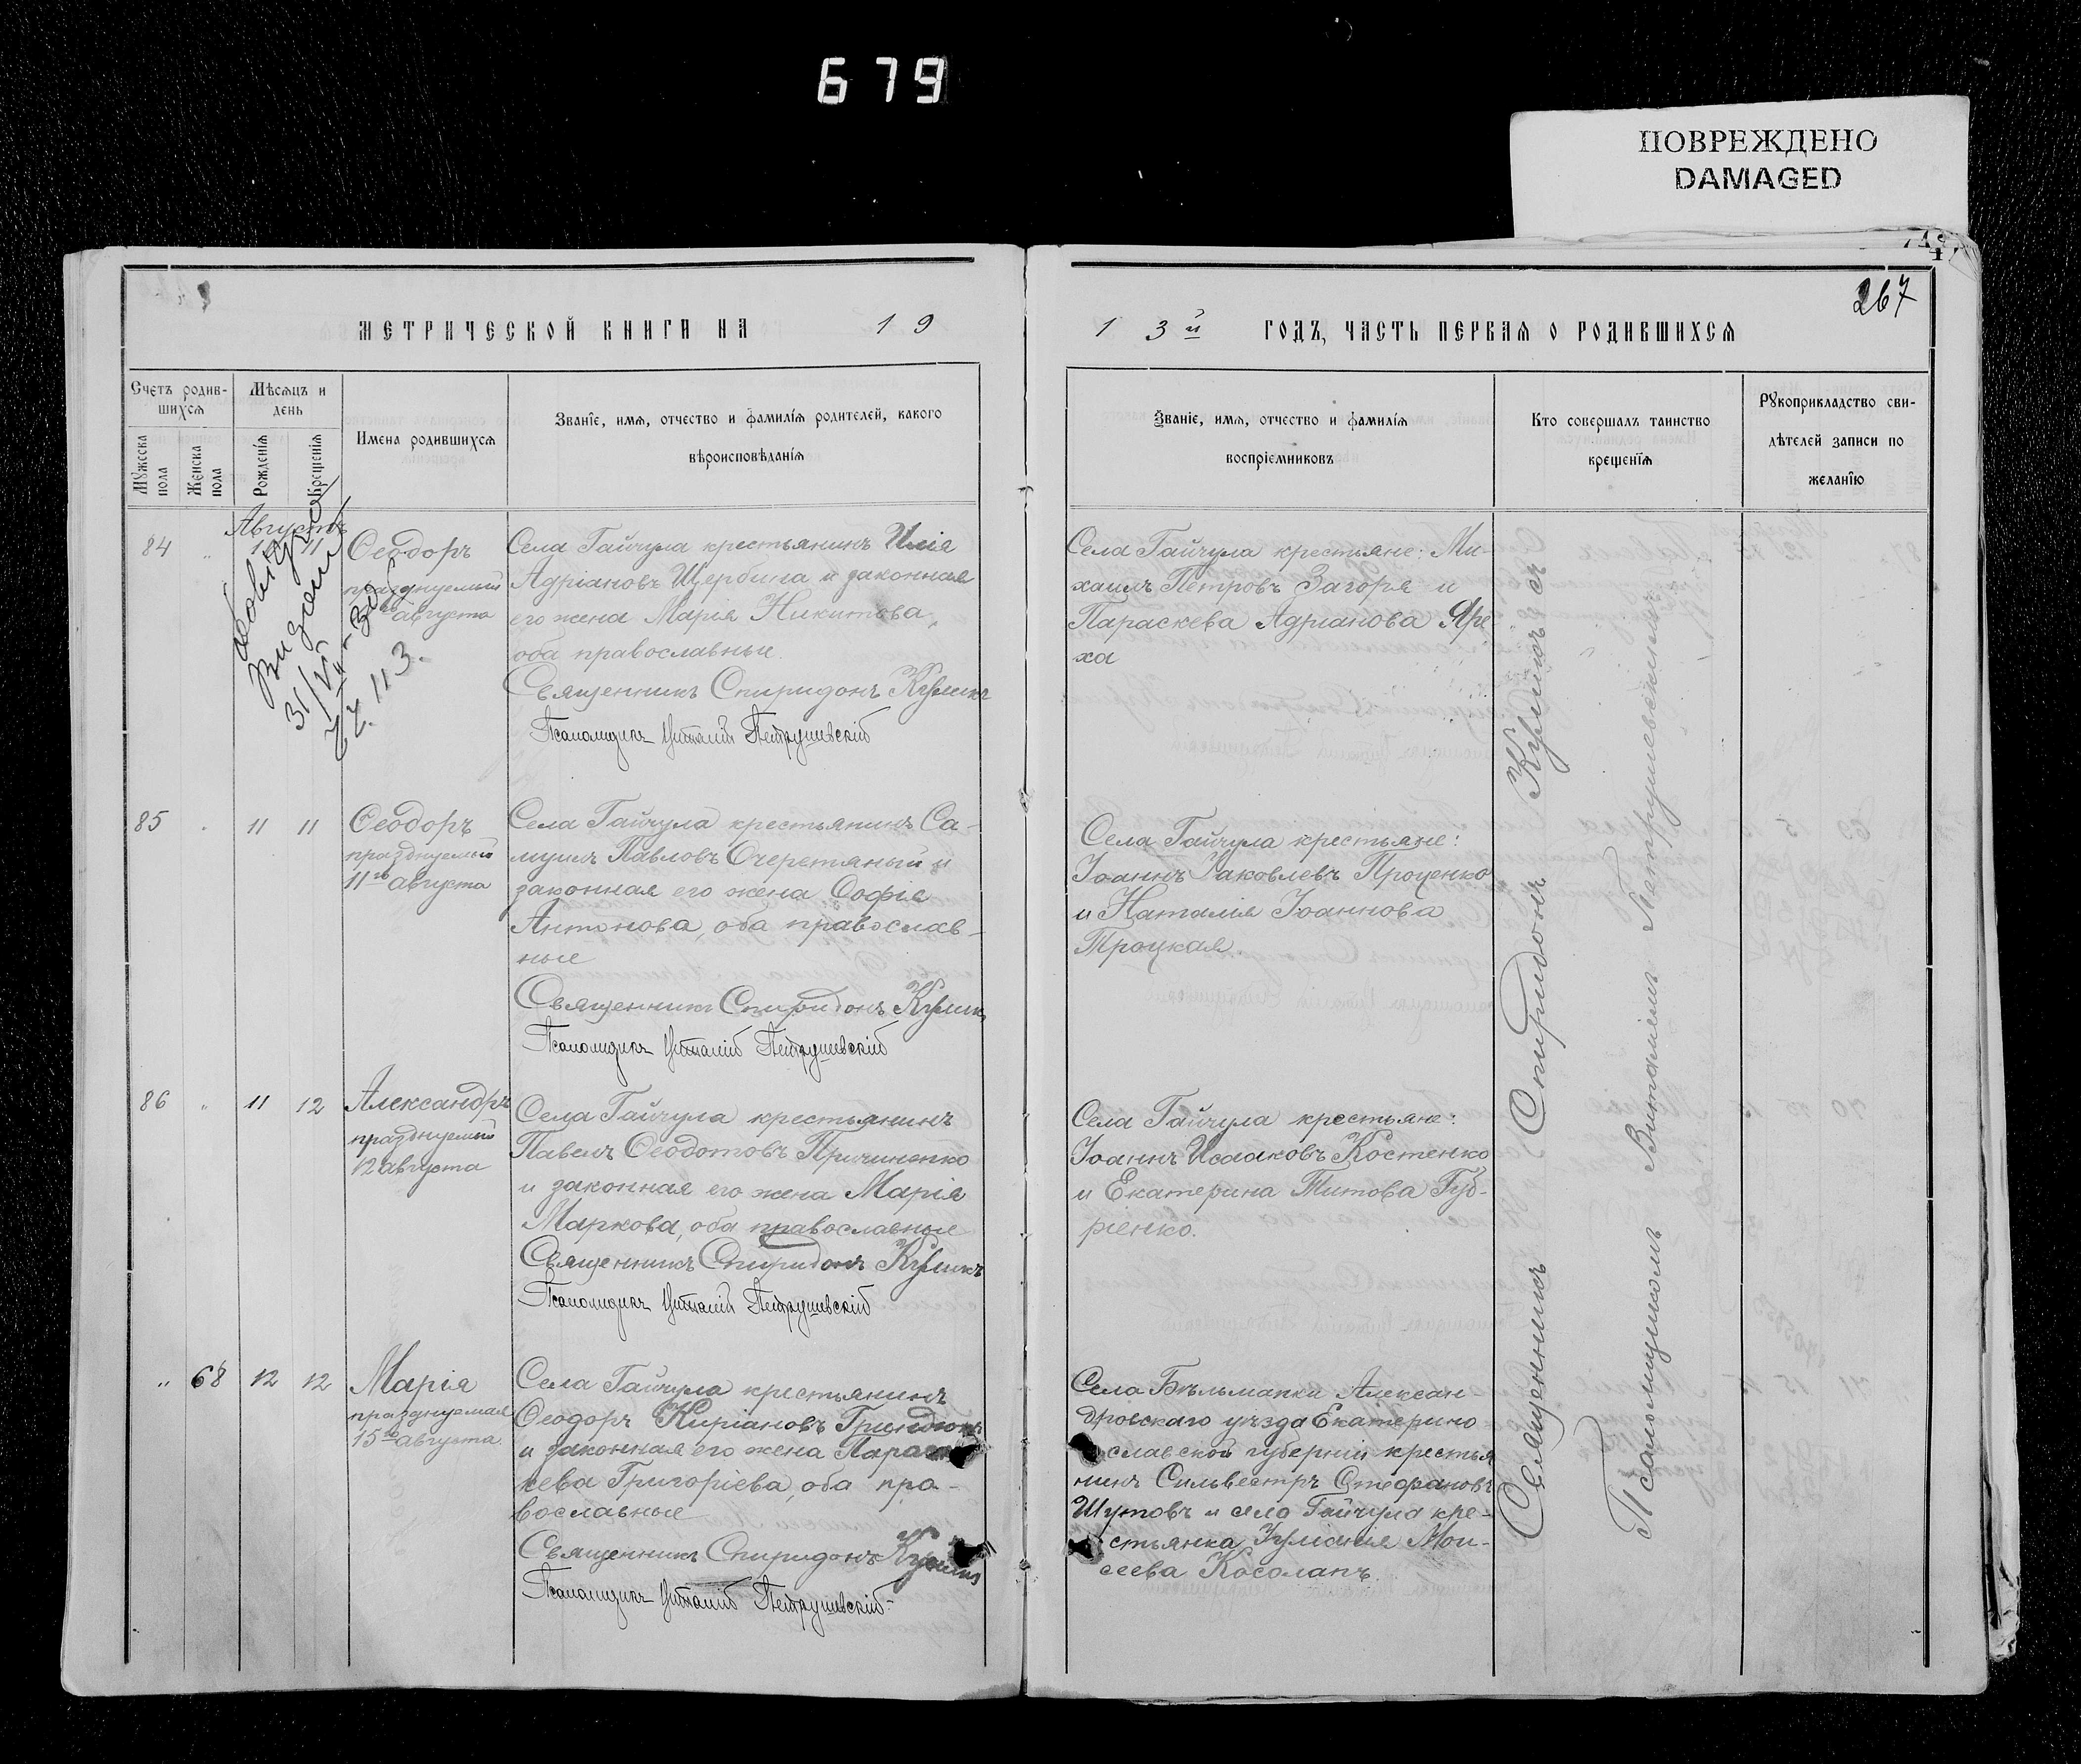 679
ПОВРЕЖДЕНО
DAMAGED
267
МЕТРИЧЕСКОЙ КНИГИ НА 19
13й ГОДЪ, ЧАСТЬ ПЕРВАЯ О РОДИВШИХСЯ
Счетъ родив-
шихся
Мужеска пола
Женска пола
Мѣсяцъ и
день
Рожденія
Крещенія
Имена родившихся
Званіе, имя, отчество и фамилія родителей, какого
вѣроисповѣданія
Званіе, имя, отчество и фамилія
воспріемниковъ
Кто совершалъ таинство
крещенія
Рукоприкладство сви-
дѣтелей записи по
желанію
Августъ
84 " 11
Ѳеодоръ
празднуемый
августа
Выдан
31/VII-30
№ 113.
Села Гайчула крестьянинъ Илія
Адріановъ Щербина и законная
его жена Марія Никитова,
оба православные.
Священникъ Спиридонъ Куликъ
Псаломщикъ Виталій Петрушевскій
Села Гайчула крестьяне: Ми-
хаилъ Петровъ Загоря и
Параскева Адріанова Яре-
ха
85 " 11 11
Ѳеодоръ
празднуемый
11го августа
Села Гайчула крестьянинъ Са-
муилъ Павловъ Очеретяный и
законная его жена Софія
Антонова, оба православ-
ные
Священникъ Спиридонъ Куликъ
Псаломщикъ Виталій Петрушевскій
Села Гайчула крестьяне:
Іоаннъ Іаковлевъ Проценко
и Наталія Іоаннова
Троцкая.
86 " 11 12
Александръ
празднуемый
12 августа
Села Гайчула крестьянинъ
Павелъ Ѳеодотовъ Причиненко
и законная его жена Марія
Маркова, оба православные
Священникъ Спиридонъ Куликъ
Псаломщикъ Виталій Петрушевскій
Села Гайчула крестьяне:
Іоаннъ Исааковъ Костенко
и Екатерина Титова Губ-
ріенко.
" 68 12 12
Марія
празднуемая
15го августа
Села Гайчула крестьянинъ
Ѳеодоръ Киріановъ
и законная его жена Парас-
кева Григоріева, оба пра-
вославные
Священникъ Спиридонъ Куликъ
Псаломщикъ Виталій Петрушевскій
Села Бѣльманки Алексан-
дровскаго уѣзда Екатерино
славской губерніи крестья
нинъ Сильвестръ Стефановъ
Шутовъ и села Гайчула кре-
стьянка Іуліанія Мои-
сеева Косолапъ.
Священникъ Спиридонъ Куликъ съ
Псаломщикомъ Виталіемъ Петрушевскимъ